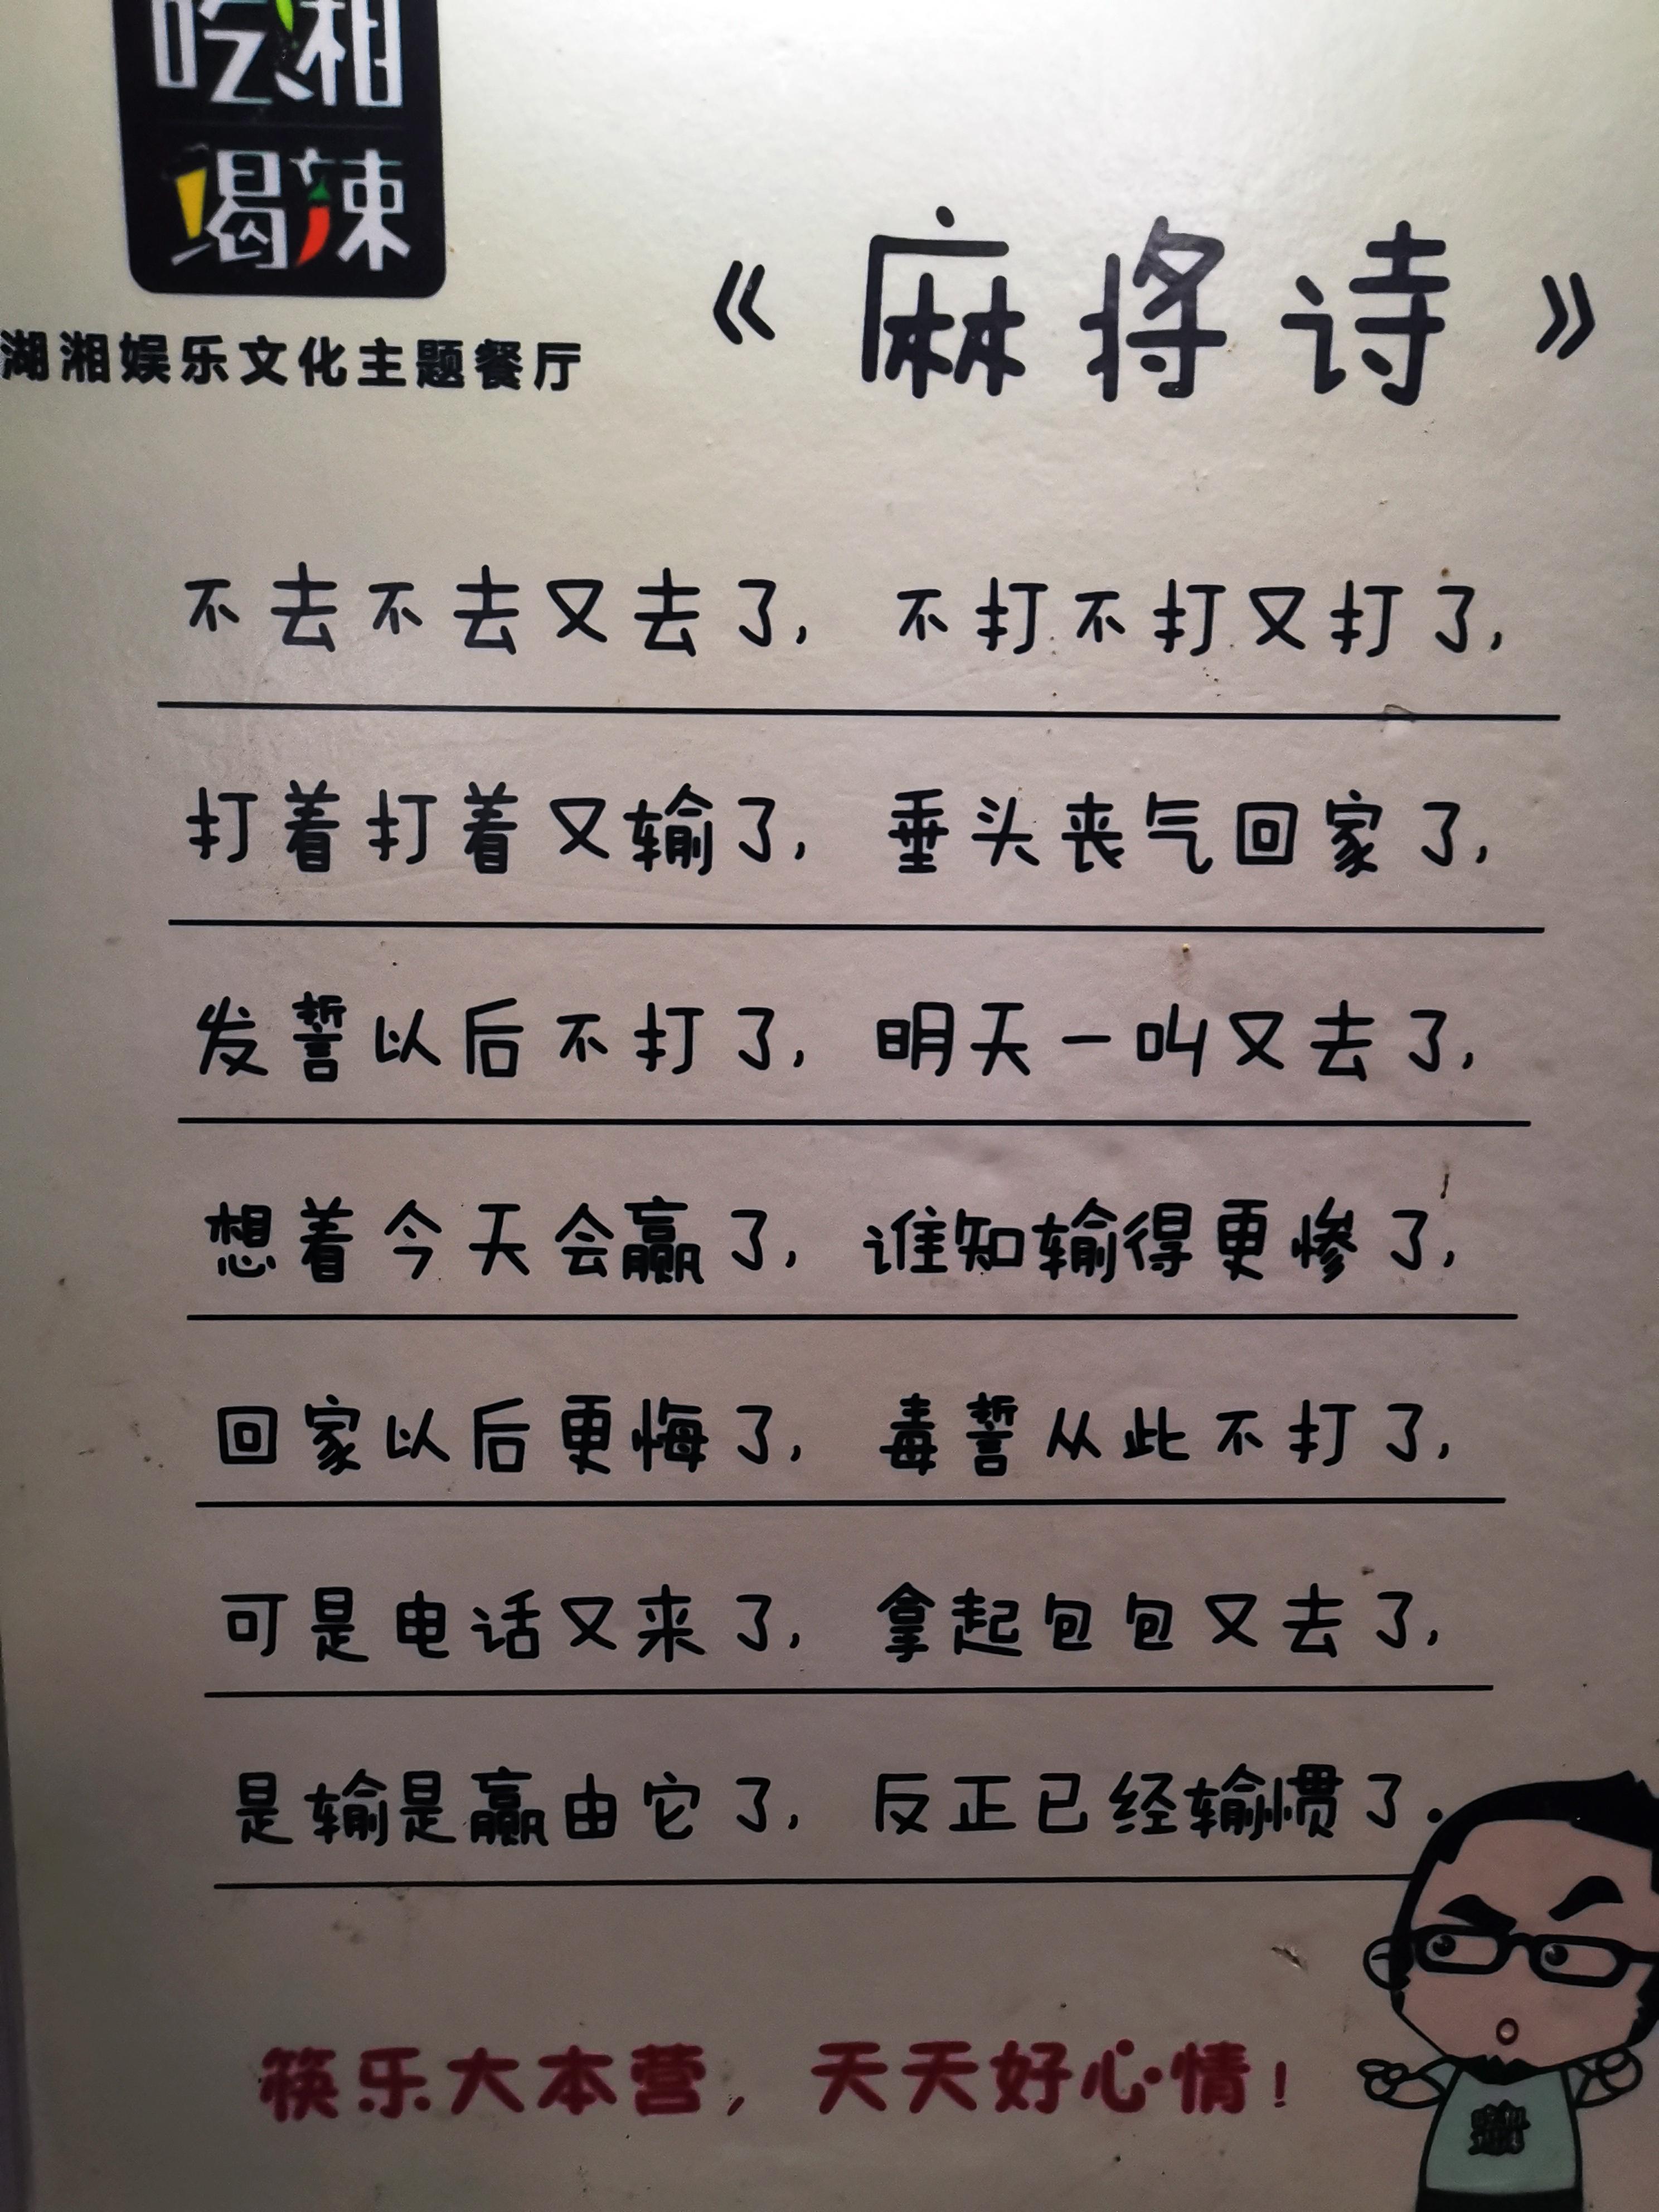 吃湘
喝辣
湖湘娱乐文化主题餐厅
《麻将诗》
不去不去又去了，不打不打又打了，
打着打着又输了，垂头丧气回家了，
发誓以后不打了，明天一叫又去了，
想着今天会赢了，谁知输得更惨了，
回家以后更悔了，毒誓从此不打了，
可是电话又来了，拿起包包又去了，
是输是赢由它了，反正已经输惯了.
筷乐大本营，天天好心情！